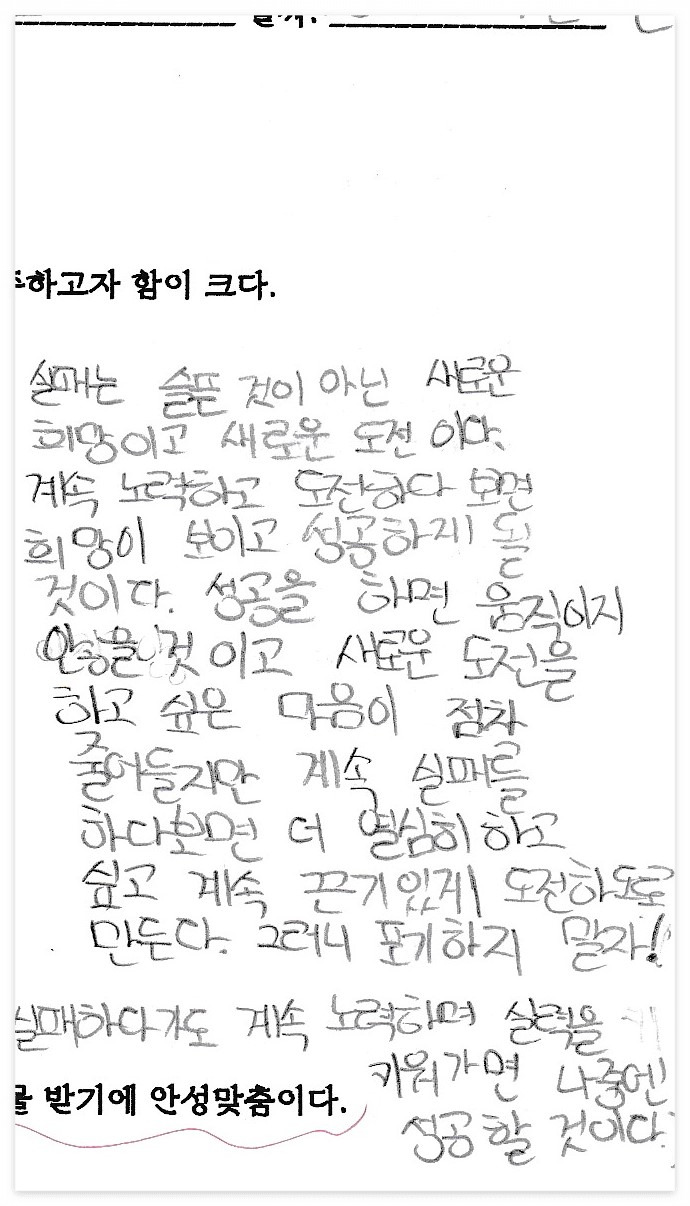 하고자 함이 크다.
실패는 슬픈 것이 아닌 새로운
희망이고 새로운 도전 이다.
계속 노력하고 도전하다 보면
희망이 보이고 성공하게 될
것이다. 성공을 하면 움직이지
않을 것 이고 새로운 도전을
하고 싶은 마음이 점차
줄어들지만 계속 실패를
하다보면 더 열심히 하고
싶고 계속 끈기있게 도전하도록
만든다. 그러니 포기하지 말자!
실패하다가도 계속 노력하며 실력을
키워가면 나중엔
받기에 안성맞춤이다.
성공할 것이다.